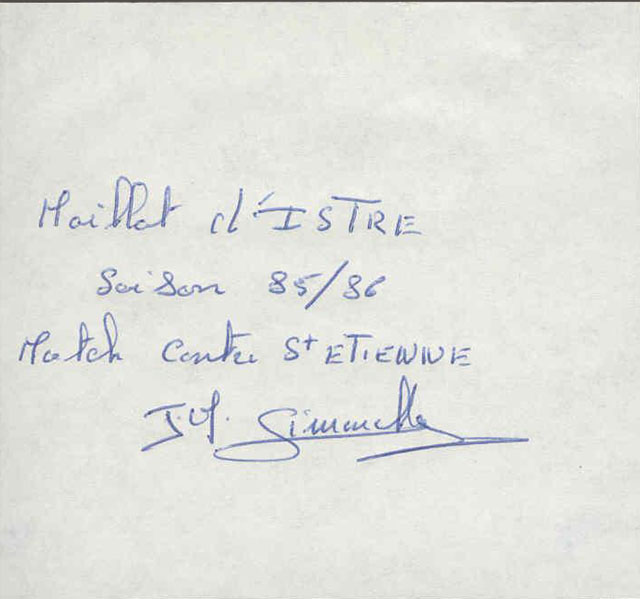 Maillot d'ISTRE
Saison 85/86
Match contre St ETIENNE
J.M.